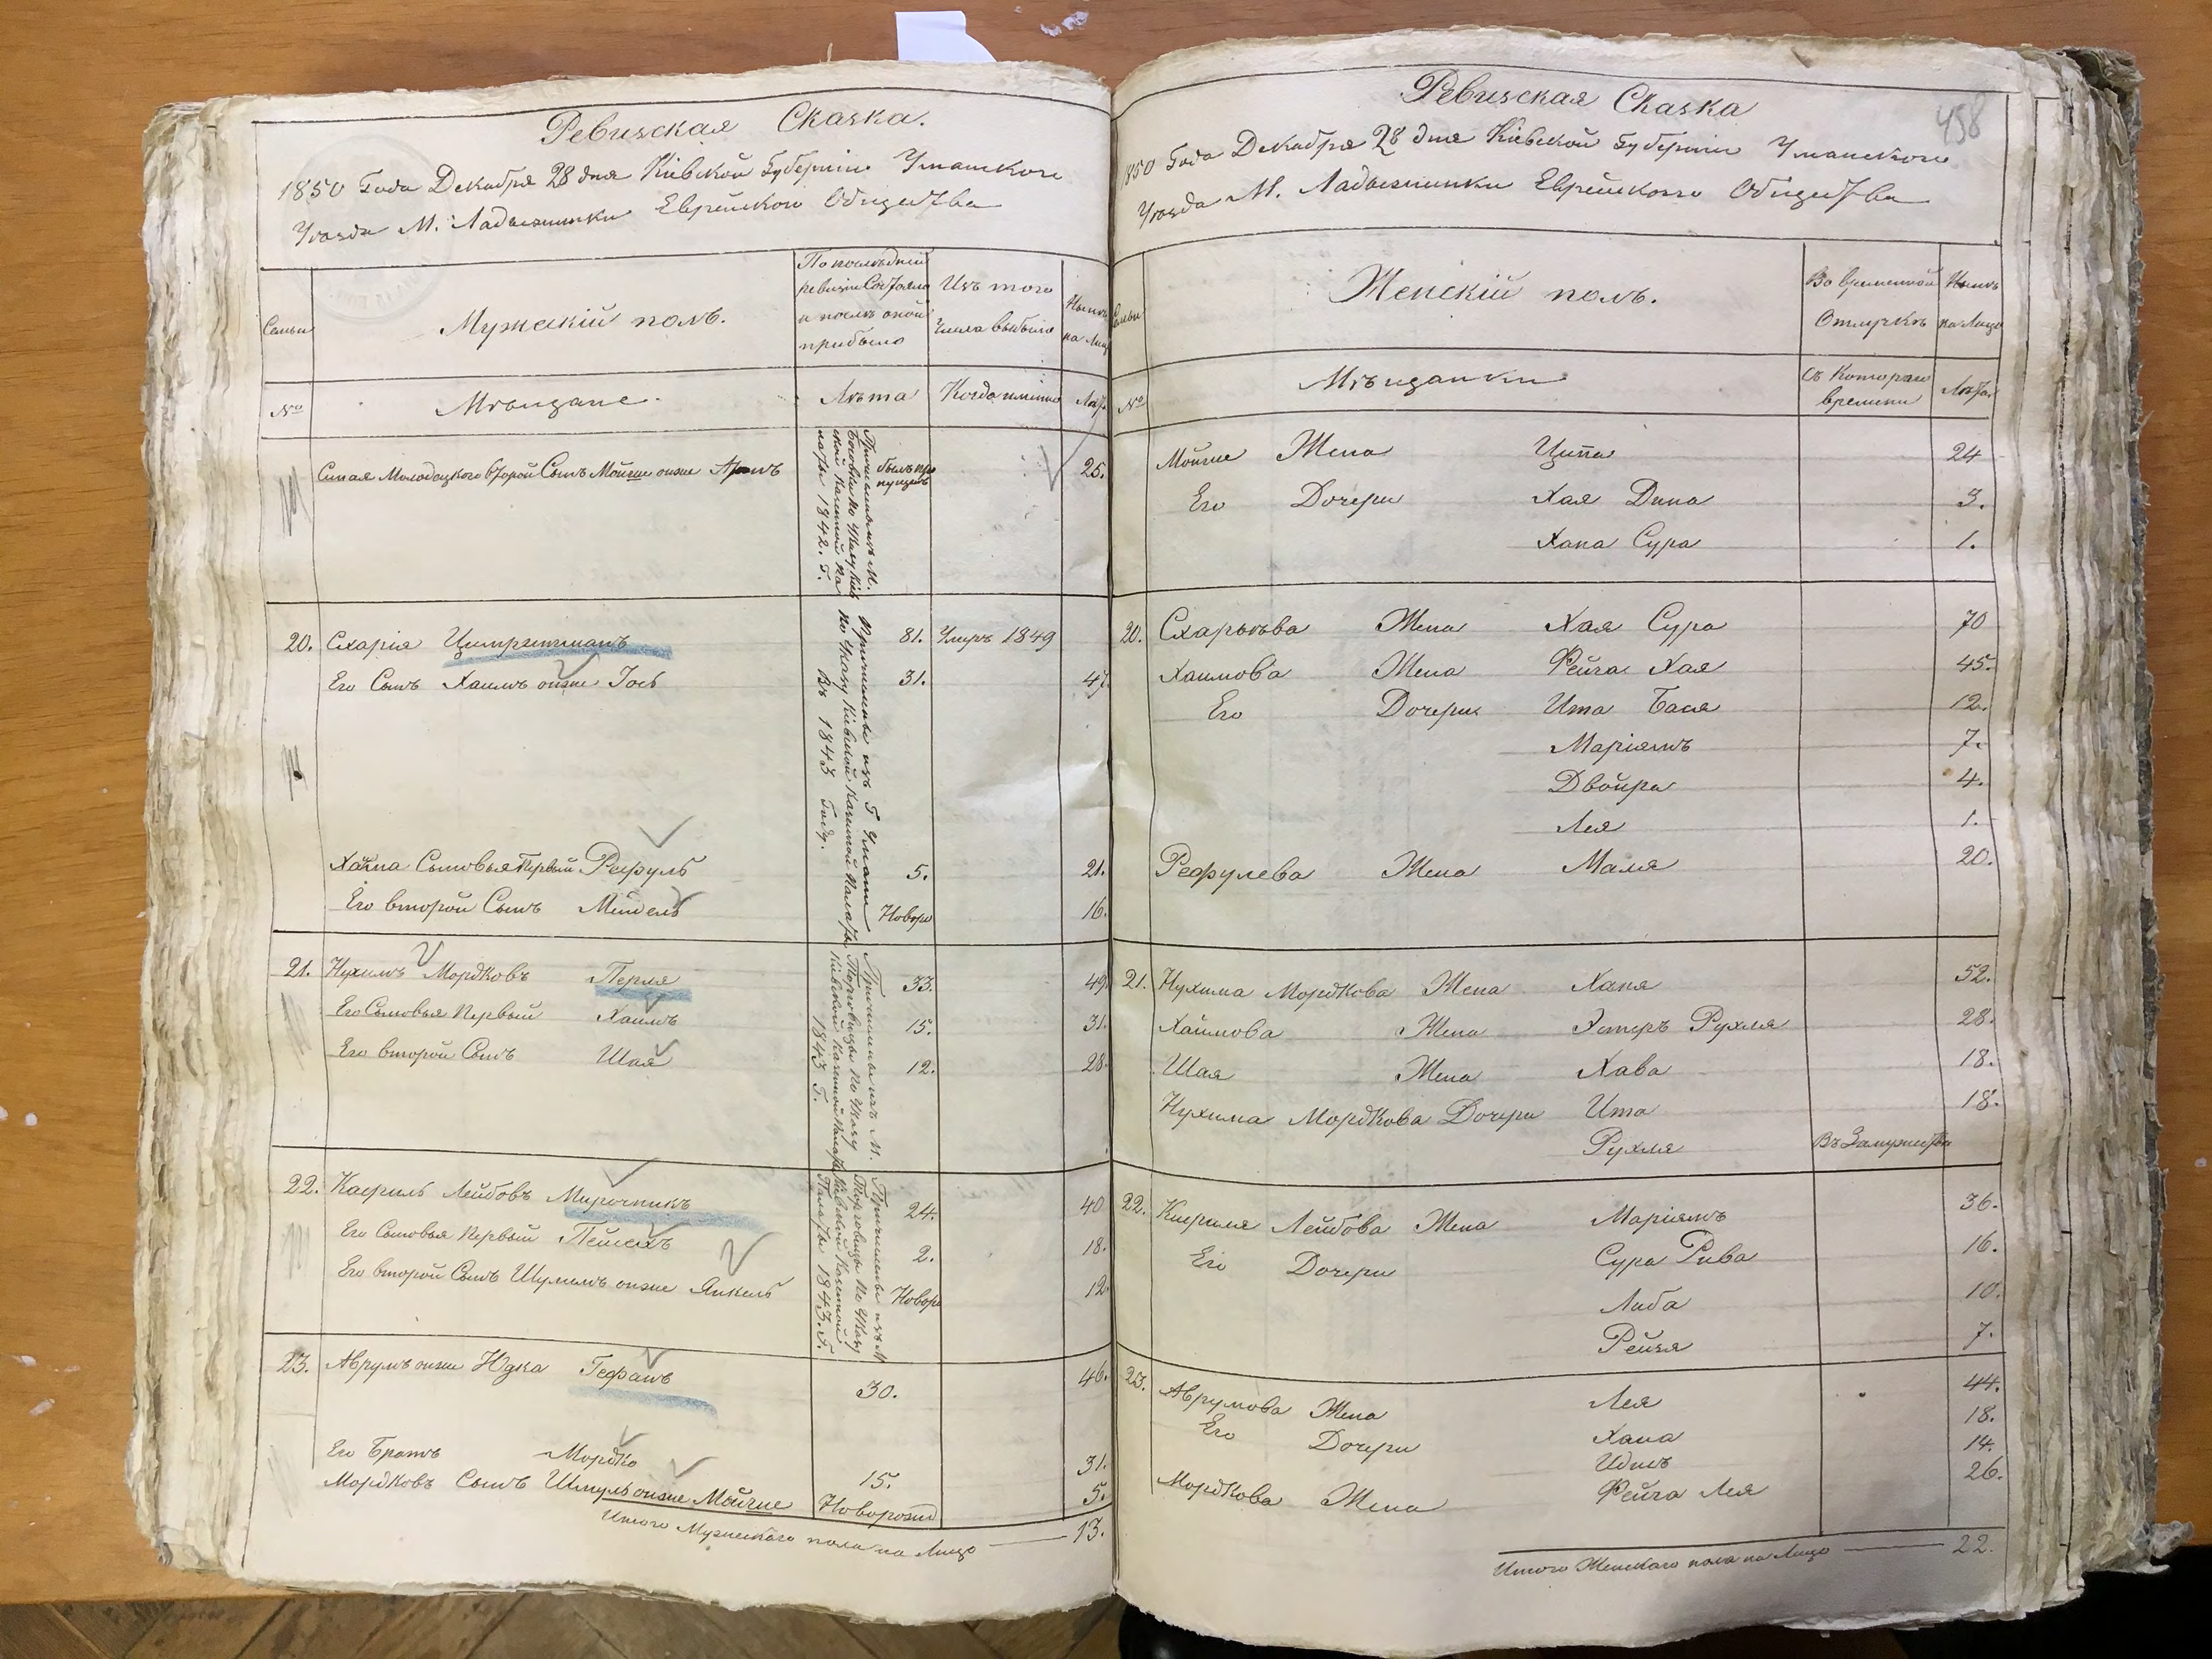 Ревизская Сказка.
1850 Года Декабря 28 дня Кіевской Губерніи Уманского
Уѣзда М. Ладыжинки Еврейского Общества
Семьи
Мужескій полъ.
По послѣдней
ревизіи Состояло
и послѣ оной
прибыло
Изъ того
Числа выбыло
Нынѣ
на Лицо
№
Мѣщане.
Лѣта
Когда именно
Лѣта
Сипая Молодецкого второй Сынъ Мойше онже
былъ про
пущенъ
25.
Причисленъ изъ М.
Казенной Па
латы 1842. Г.
20. Схарія Цимерманъ 81. Умеръ 1849
Его Сынъ Хаимъ онже Іось 31. 47.
Хаима Сыновья Первый Рефуль 5. 21.
Его второй Сынъ Мендель Новоро 16.
Причислены изъ Г Умани
по Указу Кіевской Казенной Палаты
Въ 1843 Году.
21. Нухимъ Мордковъ Перля 33. 49.
Его Сыновья Первый Хаимъ 15. 31.
Его второй Сынъ Шая 12. 28.
Причислены изъ М.
Торговицы по Указу
Кіевской Казенной Палаты
1843 Г.
22. Касриль Лейбовъ Мирочникъ 24. 40
Его Сыновья Первый Пейсехъ 2. 18.
Его второй Сынъ Шулимъ онже Янкель Новоро 12.
Причислены изъ М
Торговицы по Указу
Кіевской Казенной
Палаты 1843. Г.
23. Аврумъ онже Юдка Гефанъ 30. 46.
Его Братъ Мордко 15. 31.
Мордковъ Сынъ Шмуль онже Мойше Новорожд 5.
Итого Мужескаго пола на Лицо 13.
458
Ревизская Сказка
1850 Года Декабря 28 дня Кіевской Губерніи Уманского
Уѣзда М. Ладыжинки Еврейского Общества
Семьи
Женскій полъ.
Во временной
Отлучкѣ
Нынѣ
на Лицо
№
Мѣщанки
Съ Котораго
времени
Лѣта
Мойше Жена Ципа 24
Его Дочери Хая Дина 3.
Хана Сура 1.
20. Схарьева Жена Хая Сура 70
Хаимова Жена Фейга Хая 45.
Его Дочери Ита Бася 12.
Маріямъ 7.
Двойра 4.
Лея 1.
Рефулева Жена Маля 20.
21. Нухима Мордкова Жена Ханя 52.
Хаимова Жена Эстеръ Рухля 28.
Шая Жена Хава 18.
Нухима Мордкова Дочери Ита 18.
Рухля Въ Замужестве
22. Касриля Лейбова Жена Маріямъ 36.
Его Дочери Сура Рива 16.
Либа 10.
Рейзя 7.
23. Аврумова Жена Лея 44.
Его Дочери Хана 18.
Идись 14.
Мордкова Жена Фейга Лея 26.
Итого Женскаго пола на Лицо 22.